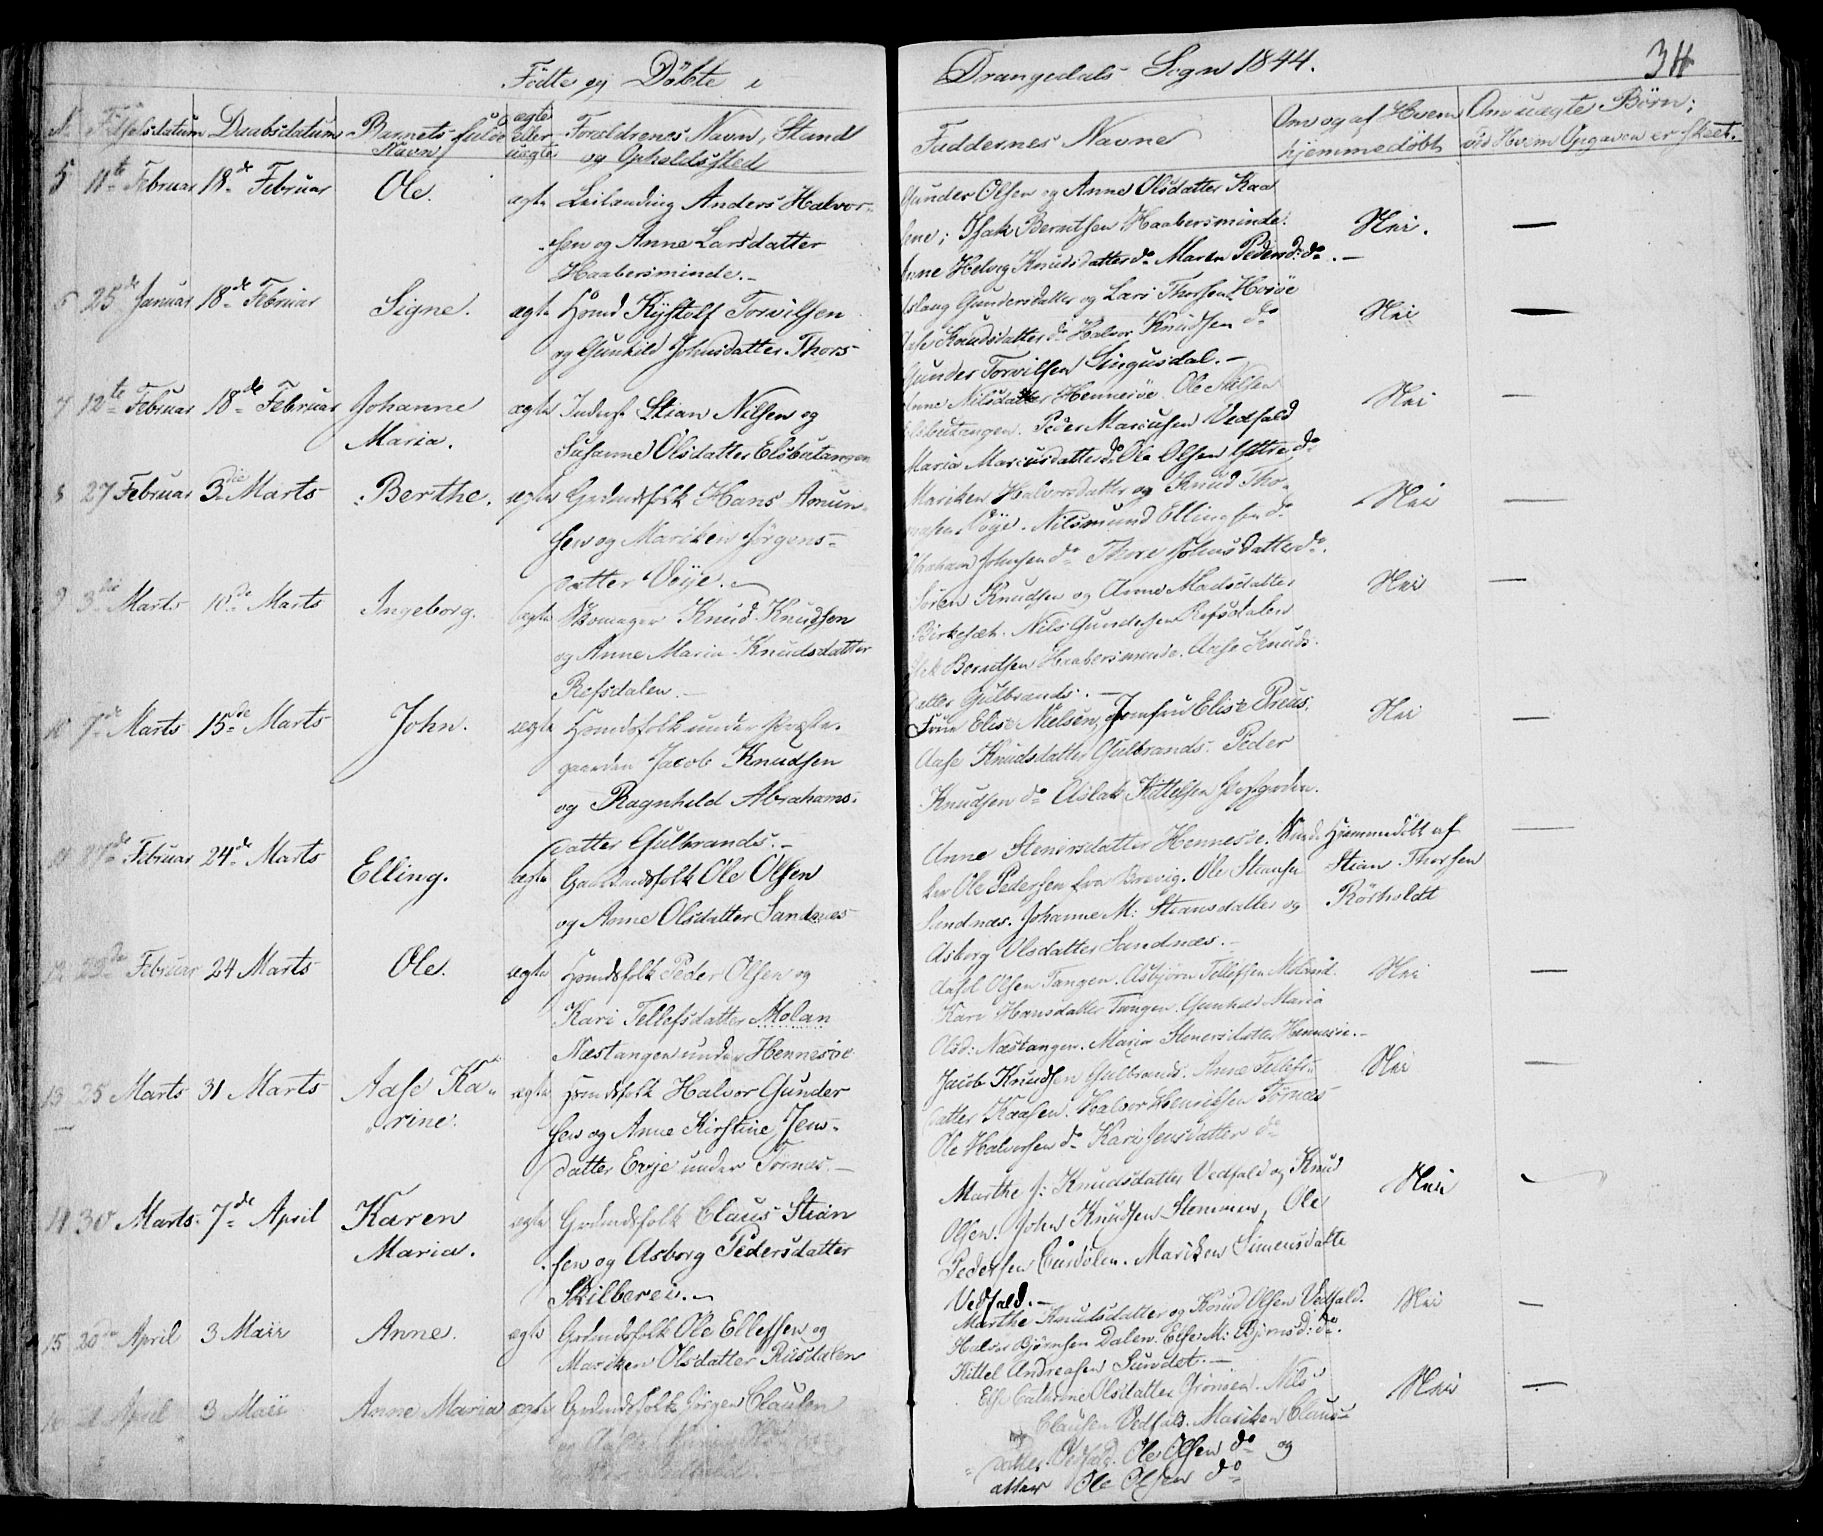 Födte og Döbte i Drangedals Sogn 1844.
34
Födselsdatum Daabsdatum Barnets fulde Navn ægte eller uægte Forældrenes Navn, Stand og Opholdssted
Faddernes Navne Om og af Hvem hjemmedöbt Om uægte Børn; ved Hvem Opgaven er skeet.
5 11te Februar 18de Februar Ole. ægte Leilænding Anders Halvor-
sen og Anne Larsdatter
Haabersminde.-
Gunder Olsen og Anne Olsdatter Kaa
sene; Isak Berntsen Haabersminde.
Anne Helvig Knudsdatter do Maren Pedersd: do.-
Nei. —
6 25de Januar 18de Februar Signe. ægte Hsmd Kjøstolf Torvilsen
og Gunhild Johnsdatter Thors-
Aslaug Gundersdatter og Lars Thorsen Hoiöe
Aase Knudsdatter do Halvor Knudsen do
Gunder Torvilsen Gingusdal.-
Nei —
7 12te Februar 18de Februar Johanne
Maria.
ægte Inderst Stian Nilsen og
Susanne Olsdatter Elsbutangen
Anne Nilsdatter Henneiöe. Ole Nilsen
Elsbutangen. Peder Marcusen Vedfald
Maria Marcusdatter do Ole Olsen do
Nei —
8 27 Februar 3die Marts Berthe. ægte Grdmdsfolk Hans Amun-
sen og Mariken Jørgens-
datter Vöje.-
Mariken Halvorsdatter og Knud Tho-
masen Vöje. Nilsmund Ellingsen do
Abraham Johnsen do Thore Johnsdatter do.
Nei —
9 3die Marts 10de Marts Ingeborg. ægte Skomager Knud Knudsen
og Anne Maria Knudsdatter
Refsdalen.-
Sören Knudsen og Anne Madsdatter
Birkesæt. Nils Gundersen Refsdalen
Isak Berntsen Haabersminde. Aase Knuds-
datter Gulbrands.-
Nei —
10 7de Marts 15de Marts John. ægte Hsmdsfolk under Præste-
gaarden Jacob Knudsen
og Ragnhild Abrahams-
datter Gulbrands.-
Frue Elise Nielsen, Jomfru Elise Preus.
Aase Knudsdatter Gulbrands. Peder
Knudsen do Aslak Kittelsen
Nei —
11 27de Februar 24de Marts Elling. ægte Gaardmdsfolk Ole Olsen
og Anne Olsdatter Sandnes
Anne Stenersdatter Hennesöe.
Ole Pedersen fra Brevig. Ole Stiansen
Sandnæs. Johanne M: Stiansdatter og
Asborg Olsdatter Sandnæs.-
Hjemmedöbt af
Stian Thorsen
Rörholdt
—
12 23de Februar 24 Marts Ole. ægte Hsmdsfolk Peder Olsen og
Kari Tellefsdatter Molan
Næstangen under Hennesöe
Olsen Tangen. Asbjörn Tellefsen Moland.
Kari Hansdatter Tangen. Gunhild Maria
Olsd: Næstangen. Maria Stenersdatter Hennesöe.-
Nei —
13 25 Marts 31 Marts Aase Ka-
rine.
ægte Hsmdsfolk Halvor Gunder
sen og Anne Kirstine Jens-
datter Eeje under Törnes.-
Jacob Knudsen Gulbrands. Anne Tellefs-
datter Kaasen. Halvor Henriksen Törnæs
Ole Halvorsen do Kari Jensdatter do
Nei —
14 30 Marts. 7de April Karen
Maria.
ægte Grdmdsfolk Claus Stian
sen og Asborg Pedersdatter
Skilberei.-
Marthe J: Knudsdatter Vedfald og Knud
Olsen. John Knudsen Stemmen, Ole
Pedersen Eusdölen. Mariken Simensdatte
Vedfald.-
Nei —
15 20de April 3 Mai Anne. ægte Grdmdsfolk Ole Ellefsen og
Mariken Olsdatter Riisdalen
Marthe Knudsdatter og Knud Olsen Vedfald.
Halvor Björnsen Dalen. Else M: Björnsd: do.
Kittel Andreasen Sundet.-
Nei —
16 21 April 3 Maii Anne Maria ægte Grdmdsfolk Jörgen Clausen
Else Cathrine Olsdatter Grönsen. Nils
Clausen Vedfald. Mariken Claus-
datter Vedfald. Ole Olsen do og
atter Ole Olsen do
Nei —